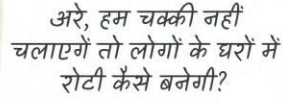 अरे, हम चक्की नहीं
चलाएगें तो लोगों के घरों में
रोटी कैसे बनेगी?